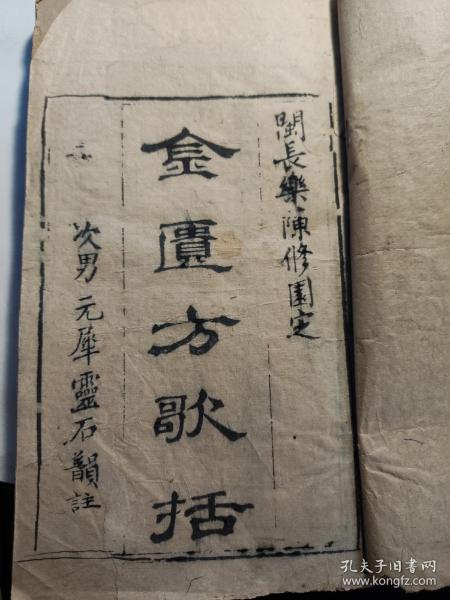 閩長樂陳修園定
金匱方歌括
次男元犀靈石韻註
孔夫子旧书网
www.kongfz.com